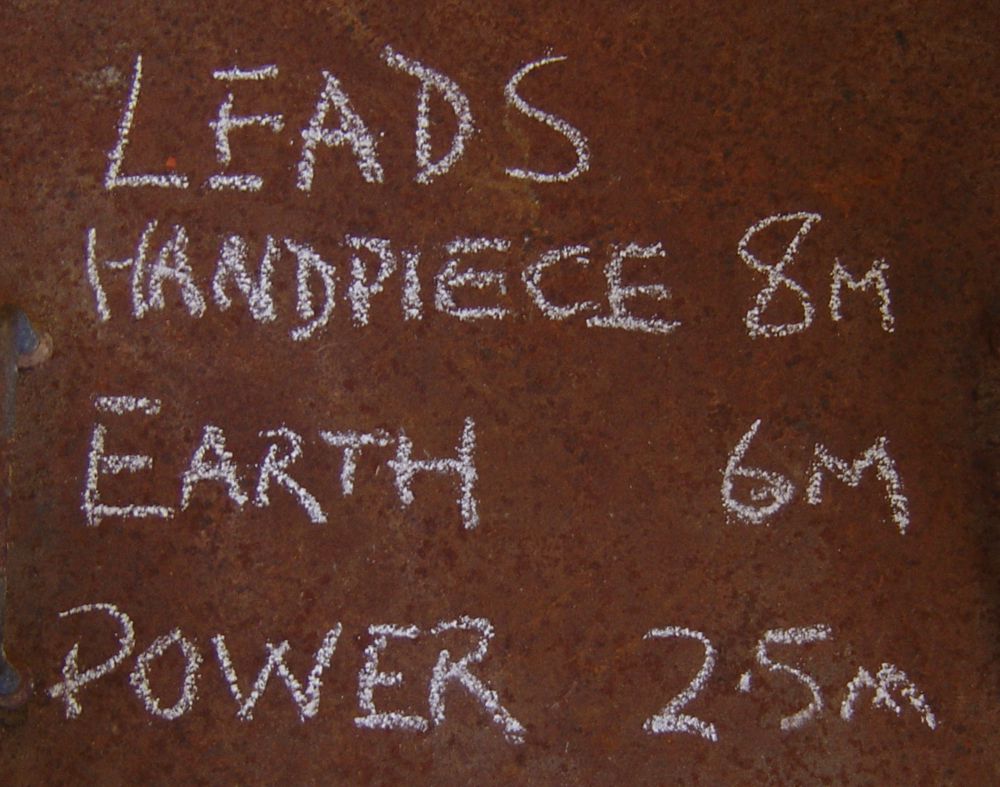 LEADS
HANDPIECE 8M
EARTH 6M
POWER 2.5m